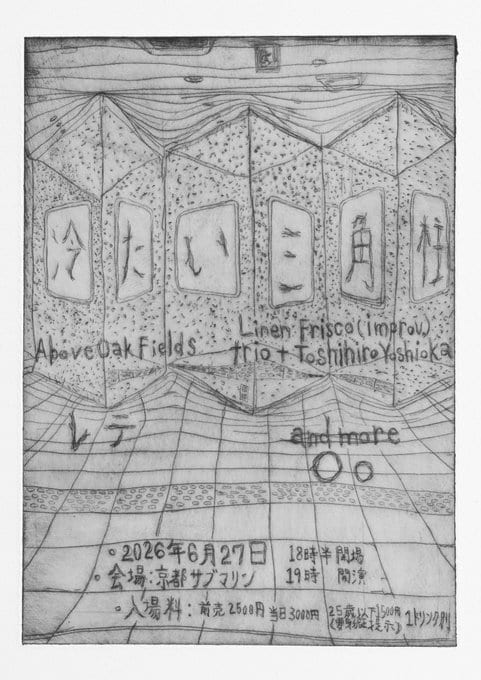 冷たい三角柱
Above Oak Fields
Linen Frisco (improv.)
trio + Toshihiro Yoshioka
レテ
and more
・2026年6月27日 18時半 開場
・会場:京都サブマリン 19時 開演
・入場料:前売2500円 当日3000円 25歳以下1500円
(要身分証提示) 1ドリンク別